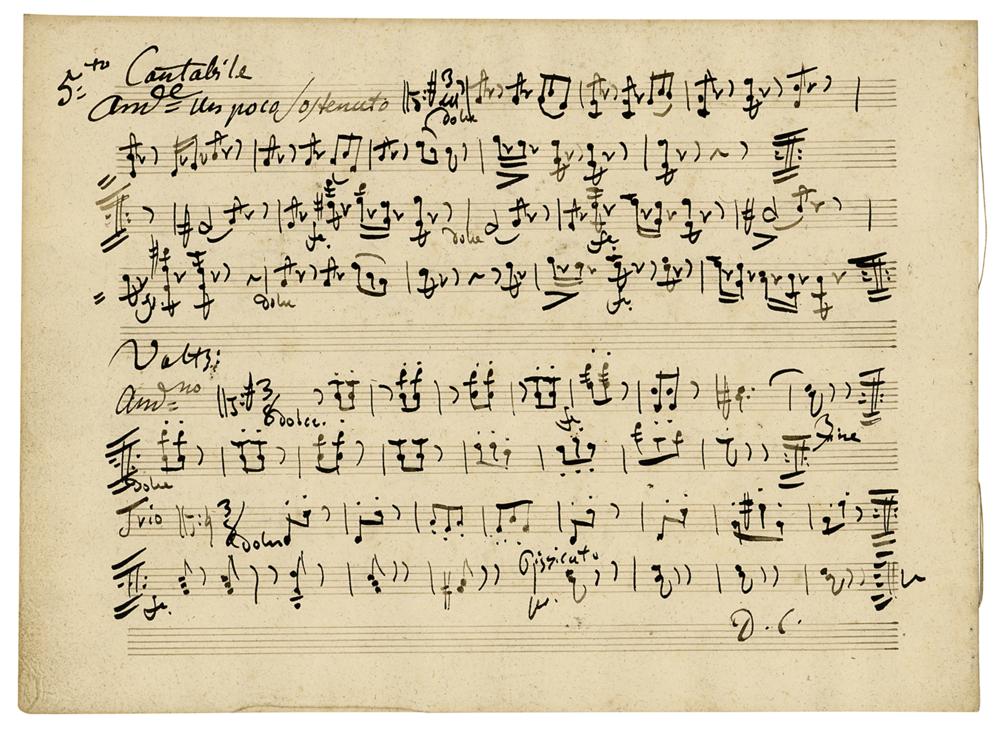 5:to Cantabile
Andde un poco sostenuto
dolce
fe. dolce fe.
fe. dolce fe.
Valtz:
Andno 3/8 dolce.
fe.
Fine
dolce
Trio 3/8 dolce
Pizzicato
fe.
D. C.